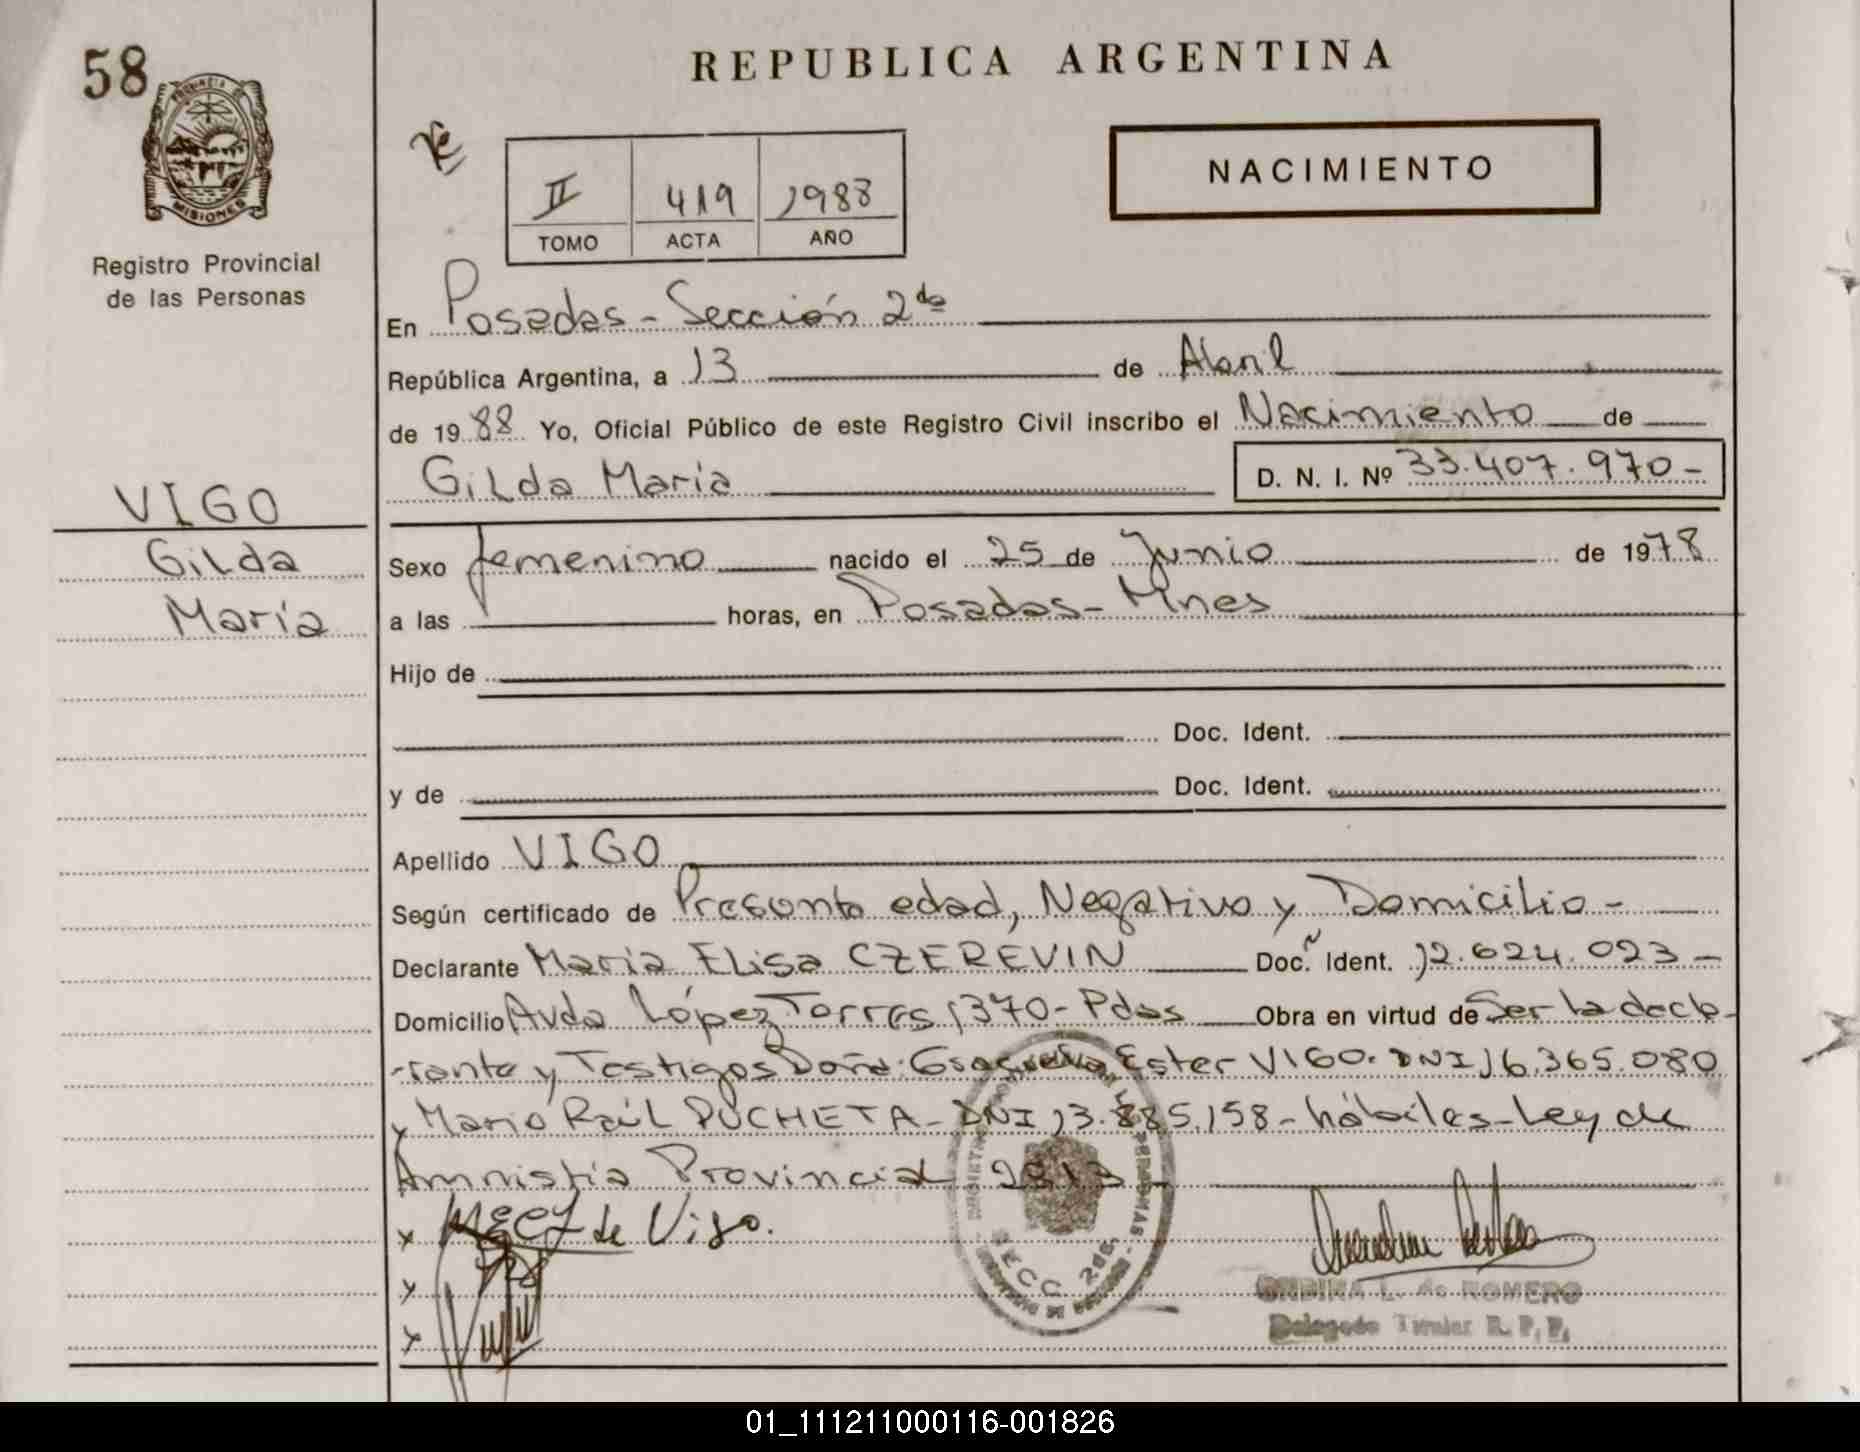 58
REPUBLICA ARGENTINA
PROVINCIA DE
MISIONES
Registro Provincial
de las Personas
II 419 1988
TOMO ACTA AÑO
NACIMIENTO
En Posadas - Sección 2da
República Argentina, a 13 de Abril
de 1988 Yo, Oficial Público de este Registro Civil inscribo el Nacimiento de
Gilda María D. N. I. Nº 33.407.970-
VIGO
Gilda
María
Sexo femenino nacido el 25 de Junio de 1978
a las horas, en Posadas - Mnes
Hijo de
Doc. Ident.
y de Doc. Ident.
Apellido VIGO
Según certificado de Presunta edad, Negativo y Domicilio -
Declarante María Elisa CZEREVIN Doc. Ident. 12.624.023-
Domicilio Avda López Torres 1370 - Pdas Obra en virtud de Ser la decla-
-rante y Testigos Doña: Ester VIGO. DNI 16.365.080
y Mario Raúl PUCHETA - DNI 13.885.158 - hábiles - Ley de
Amnistía Provincial 2813 -
x MECZ de Vigo.
x
x
SECC. 2da.
ONDINA L. de ROMERO
Delegado Titular R. P. P.
01_111211000116-001826